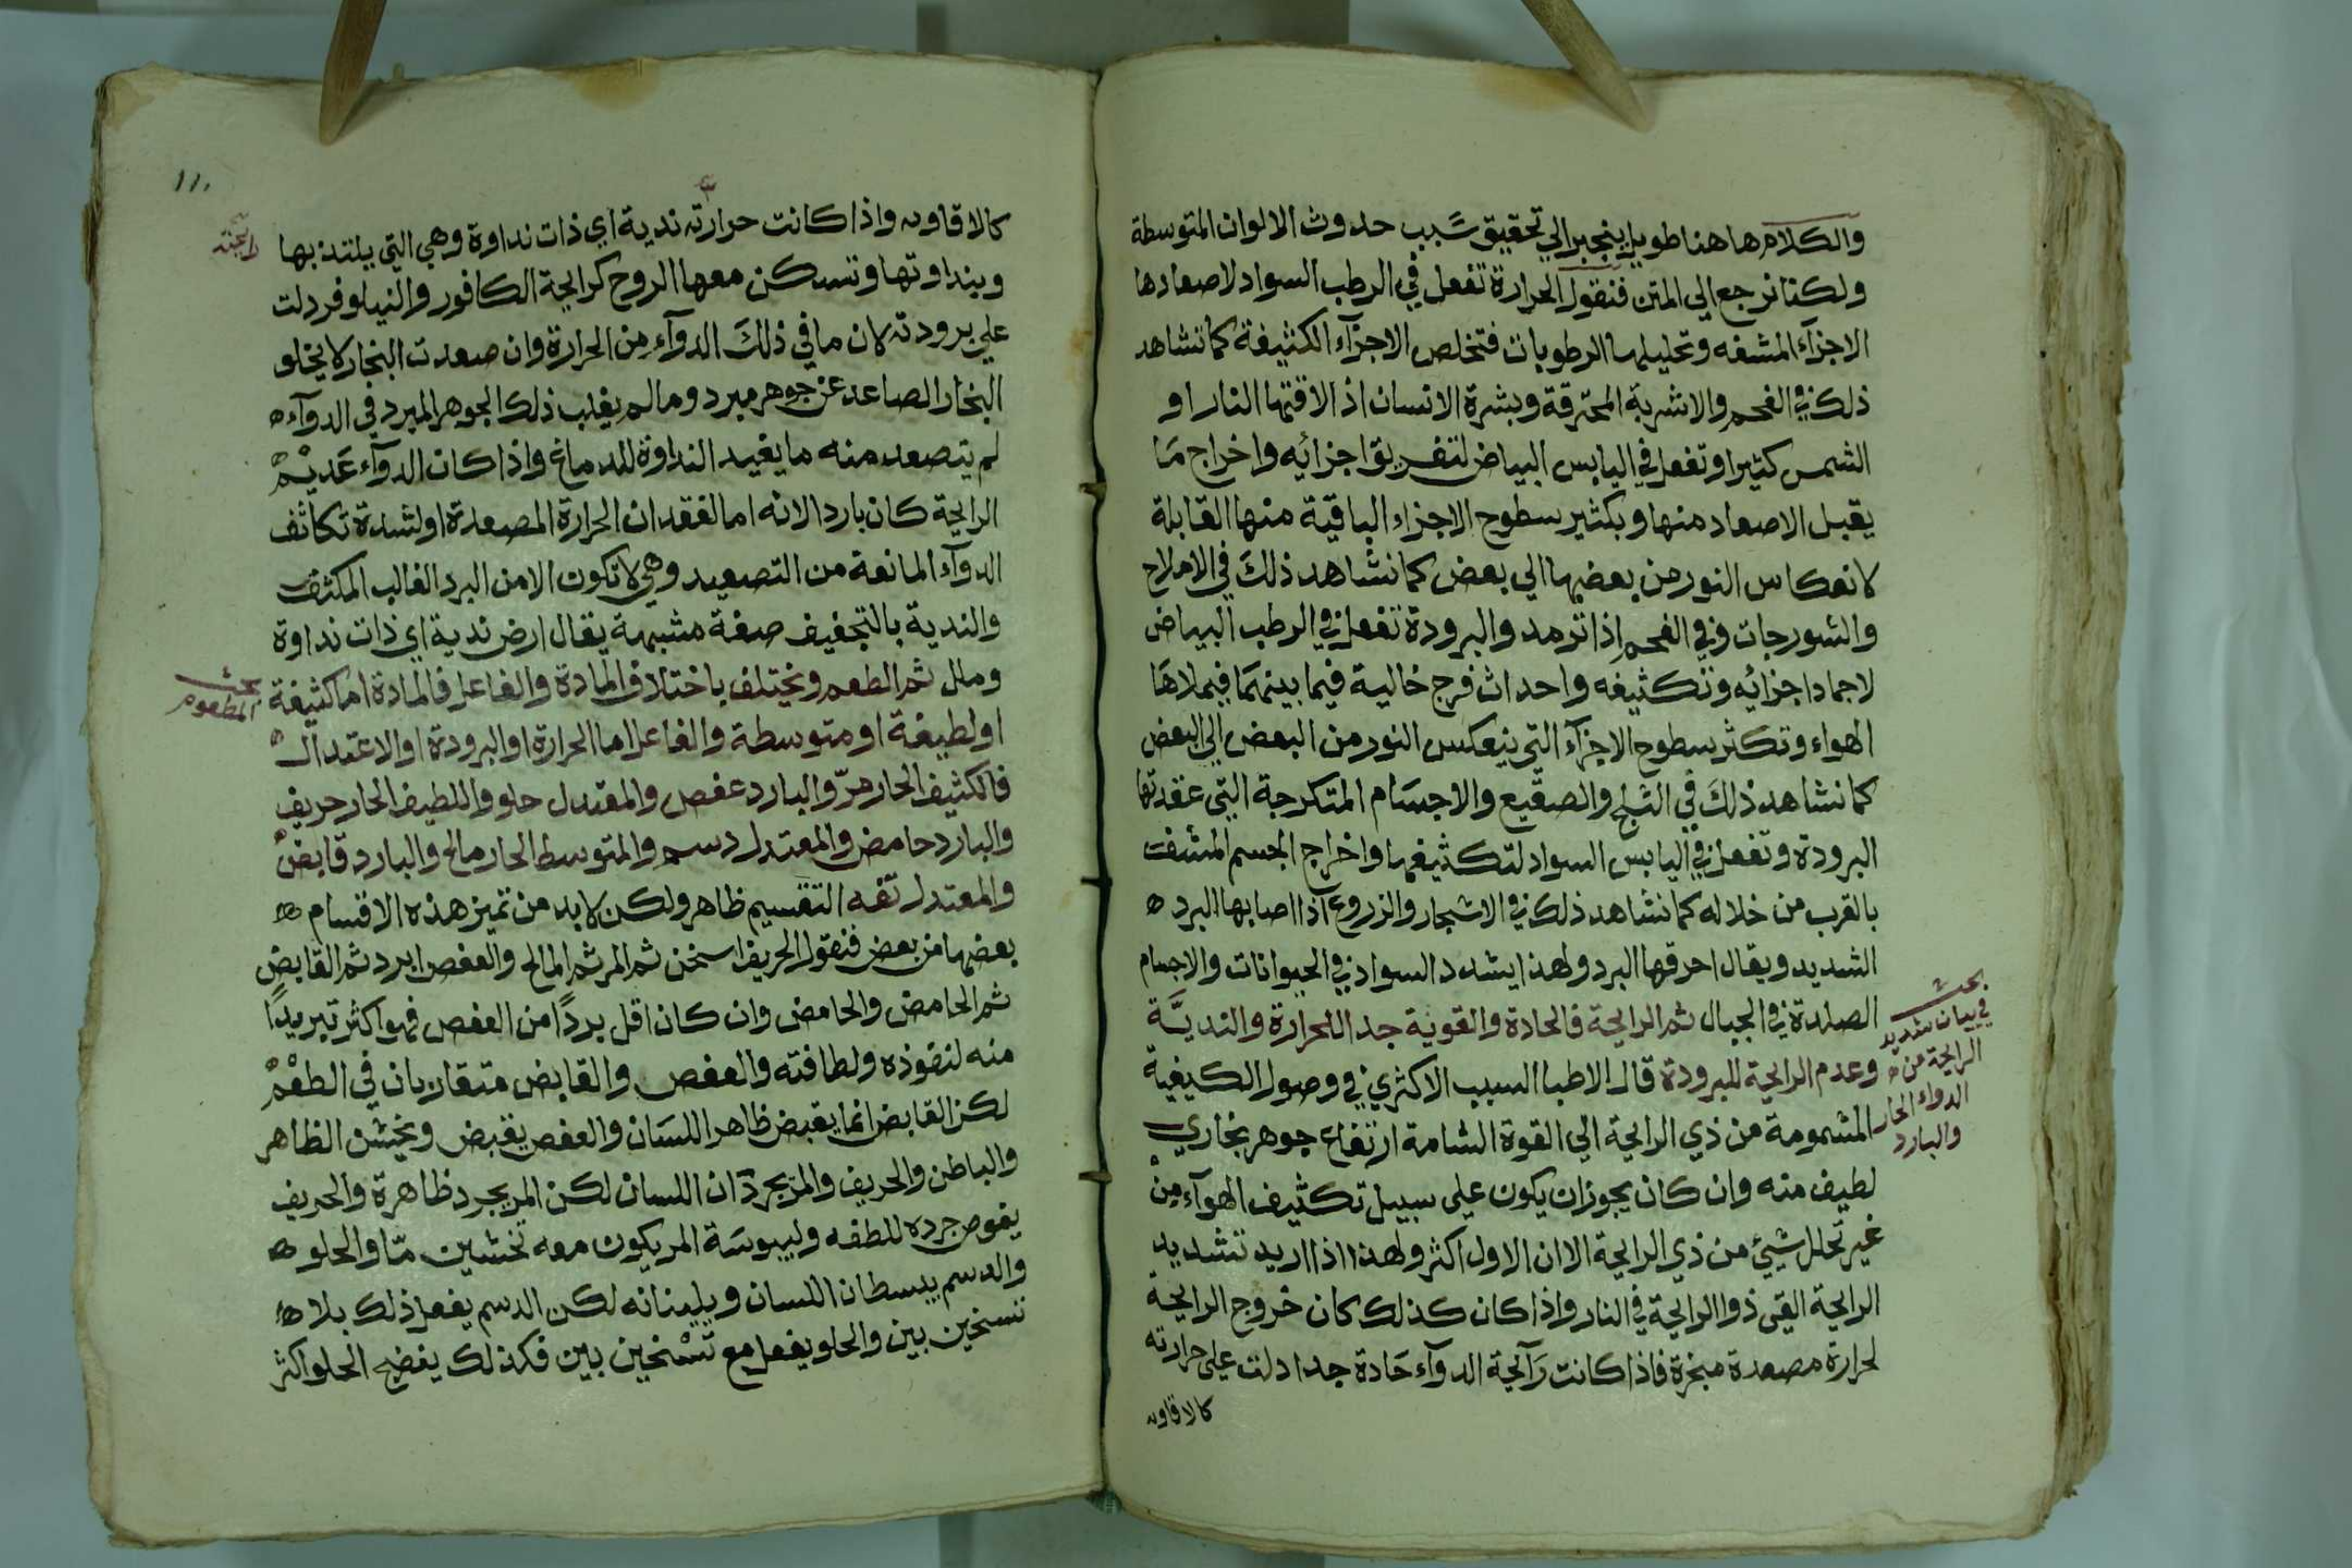 والكلام هاهنا طويل ينجر الي تحقيق سَبب حدوث الالوان المتوسطة
ولكنا نرجع الي المتن فنقول الحرارة تفعل في الرطب السواد لاصعادها
الاجزآء المشفه وتحليلها الرطوبات فتخلص الاجزآء الكثيفة كما نشاهد
ذلك في الفحم والاشربة المحترقة وبشرة الانسان اذ الاقتها النار او
الشمس كثيرا وتفعل في اليابس البياض لتفريق اجزائه واخراج مَا
يقبل الاصعاد منها وبكثير سطوح الاجزاء الباقية منها القابلة
لانعكاس النور من بعضها الي بعض كما نشاهد ذلكَ في الاملاح
والشورجات وفي الفحم اذا ترمد والبرودة تفعل في الرطب البياض
لاجماد اجزائه وتكثيفه واحداث فرج خالية فيما بينهمَا فيملاهَا
الهواء وتكثر سطوح الاجزآء التي ينعكس النور من البعض الي البعض
كما نشاهد ذلكَ في الثلج والصقيع والاجسَام المتكرجة التي عقدتها
البرودة وتفعل في اليابس السواد لتكثيفها واخراج الجسم المشفف
بالقرب من خلاله كما نشاهد ذلك في الاشجار والزروع اذا اصابها البرد
الشديد ويقال احرقها البرد ولهذا يشدد السواد في الحيوانات والاجسام
الصلدة في الجبال ثم الرايحة فالحادة والقوية جدا للحرارة والنديَّة
وعدم الرايحة للبرودة قال الاطبا السبب الاكثري في وصول الكيفية
المشمومة من ذي الرايحة الي القوة الشامة ارتفاع جوهر بخاري
لطيف منه وان كان يجوز ان يكون علي سبيل تكثيف الهوآء مِنْ
غير تحلل شيئ من ذي الرايحة الا ان الاول اكثر ولهذا اذا اريد تشديد
الرايحة القي ذوا الرايحة في النار واذا كان كذلك كان خروج الرايحة
لحرارة مصعدة مبخرة فاذا كانت رَآيحة الدوآء حَادة جدا دلت علي حرارته
كالاقاويه
بحث
في بيان شديد
الرايحة من
الدواء الحار
والبارد
١١٠
كالاقاويه واذا كانت حرارته ندية اي ذات نداوة وهي التي يلتذ بها
رايحته
وبنداوتها وتسكن معها الروح كرايحة الكافور والنيلوفر دلت
علي برودته لان ما في ذلكَ الدوآء من الحرارة وان صعدت البخار لا يخلو
البخار الصاعد عن جوهر مبرد وما لم يغلب ذلك الجوهر المبرد في الدوآء
لم يتصعد منه ما يفيد النداوة للدماغ واذا كان الدوآء عَديْم
الرايحة كان باردا لانه اما لفقدان الحرارة المصعدة او لشدة تكاثف
الدوآء المانعة من التصعيد وهي لا تكون الا من البرد الغالب المكثف
والندية بالتخفيف صفة مشبهة يقال ارض ندية اي ذات نداوة
وملل ثم الطعم ويختلف باختلاف المادة والفاعل فالمادة اما كثيفة
بحث
المطعوم
او لطيفة او متوسطة والفاعل اما الحرارة او البرودة او الاعتدال
فالكثيف الحار مرّ والبارد عفص والمعتدل حلو واللطيف الحار حريف
والبارد حامض والمعتدل دسم والمتوسط الحار مالح والبارد قابض
والمعتدل تفه التقسيم ظاهر ولكن لا بد من تميز هذه الاقسام
بعضها من بعض فنقول الحريف اسخن ثم المر ثم المالح والعفص ابرد ثم القابض
ثم الحامض والحامض وان كان اقل بردًا من العفص فهو اكثر تبريدًا
منه لنفوذه ولطافته والعفص والقابض متقاربان في الطعْم
لكن القابض انما يقبض ظاهر اللسَان والعفص يقبض ويخشن الظاهر
والباطن والحريف والمرّ يجردَان اللسان لكن المر يجرد ظاهرة والحريف
يغوص جرده للطفه وليبوسَة المر يكون معه تخشين مّا والحلو
والدسم يبسطان اللسان ويلينانه لكن الدسم يفعل ذلك بلا
تسخين بين والحلو يفعل مع تسْخين بين فكذلك يفضج الحلو اكثر